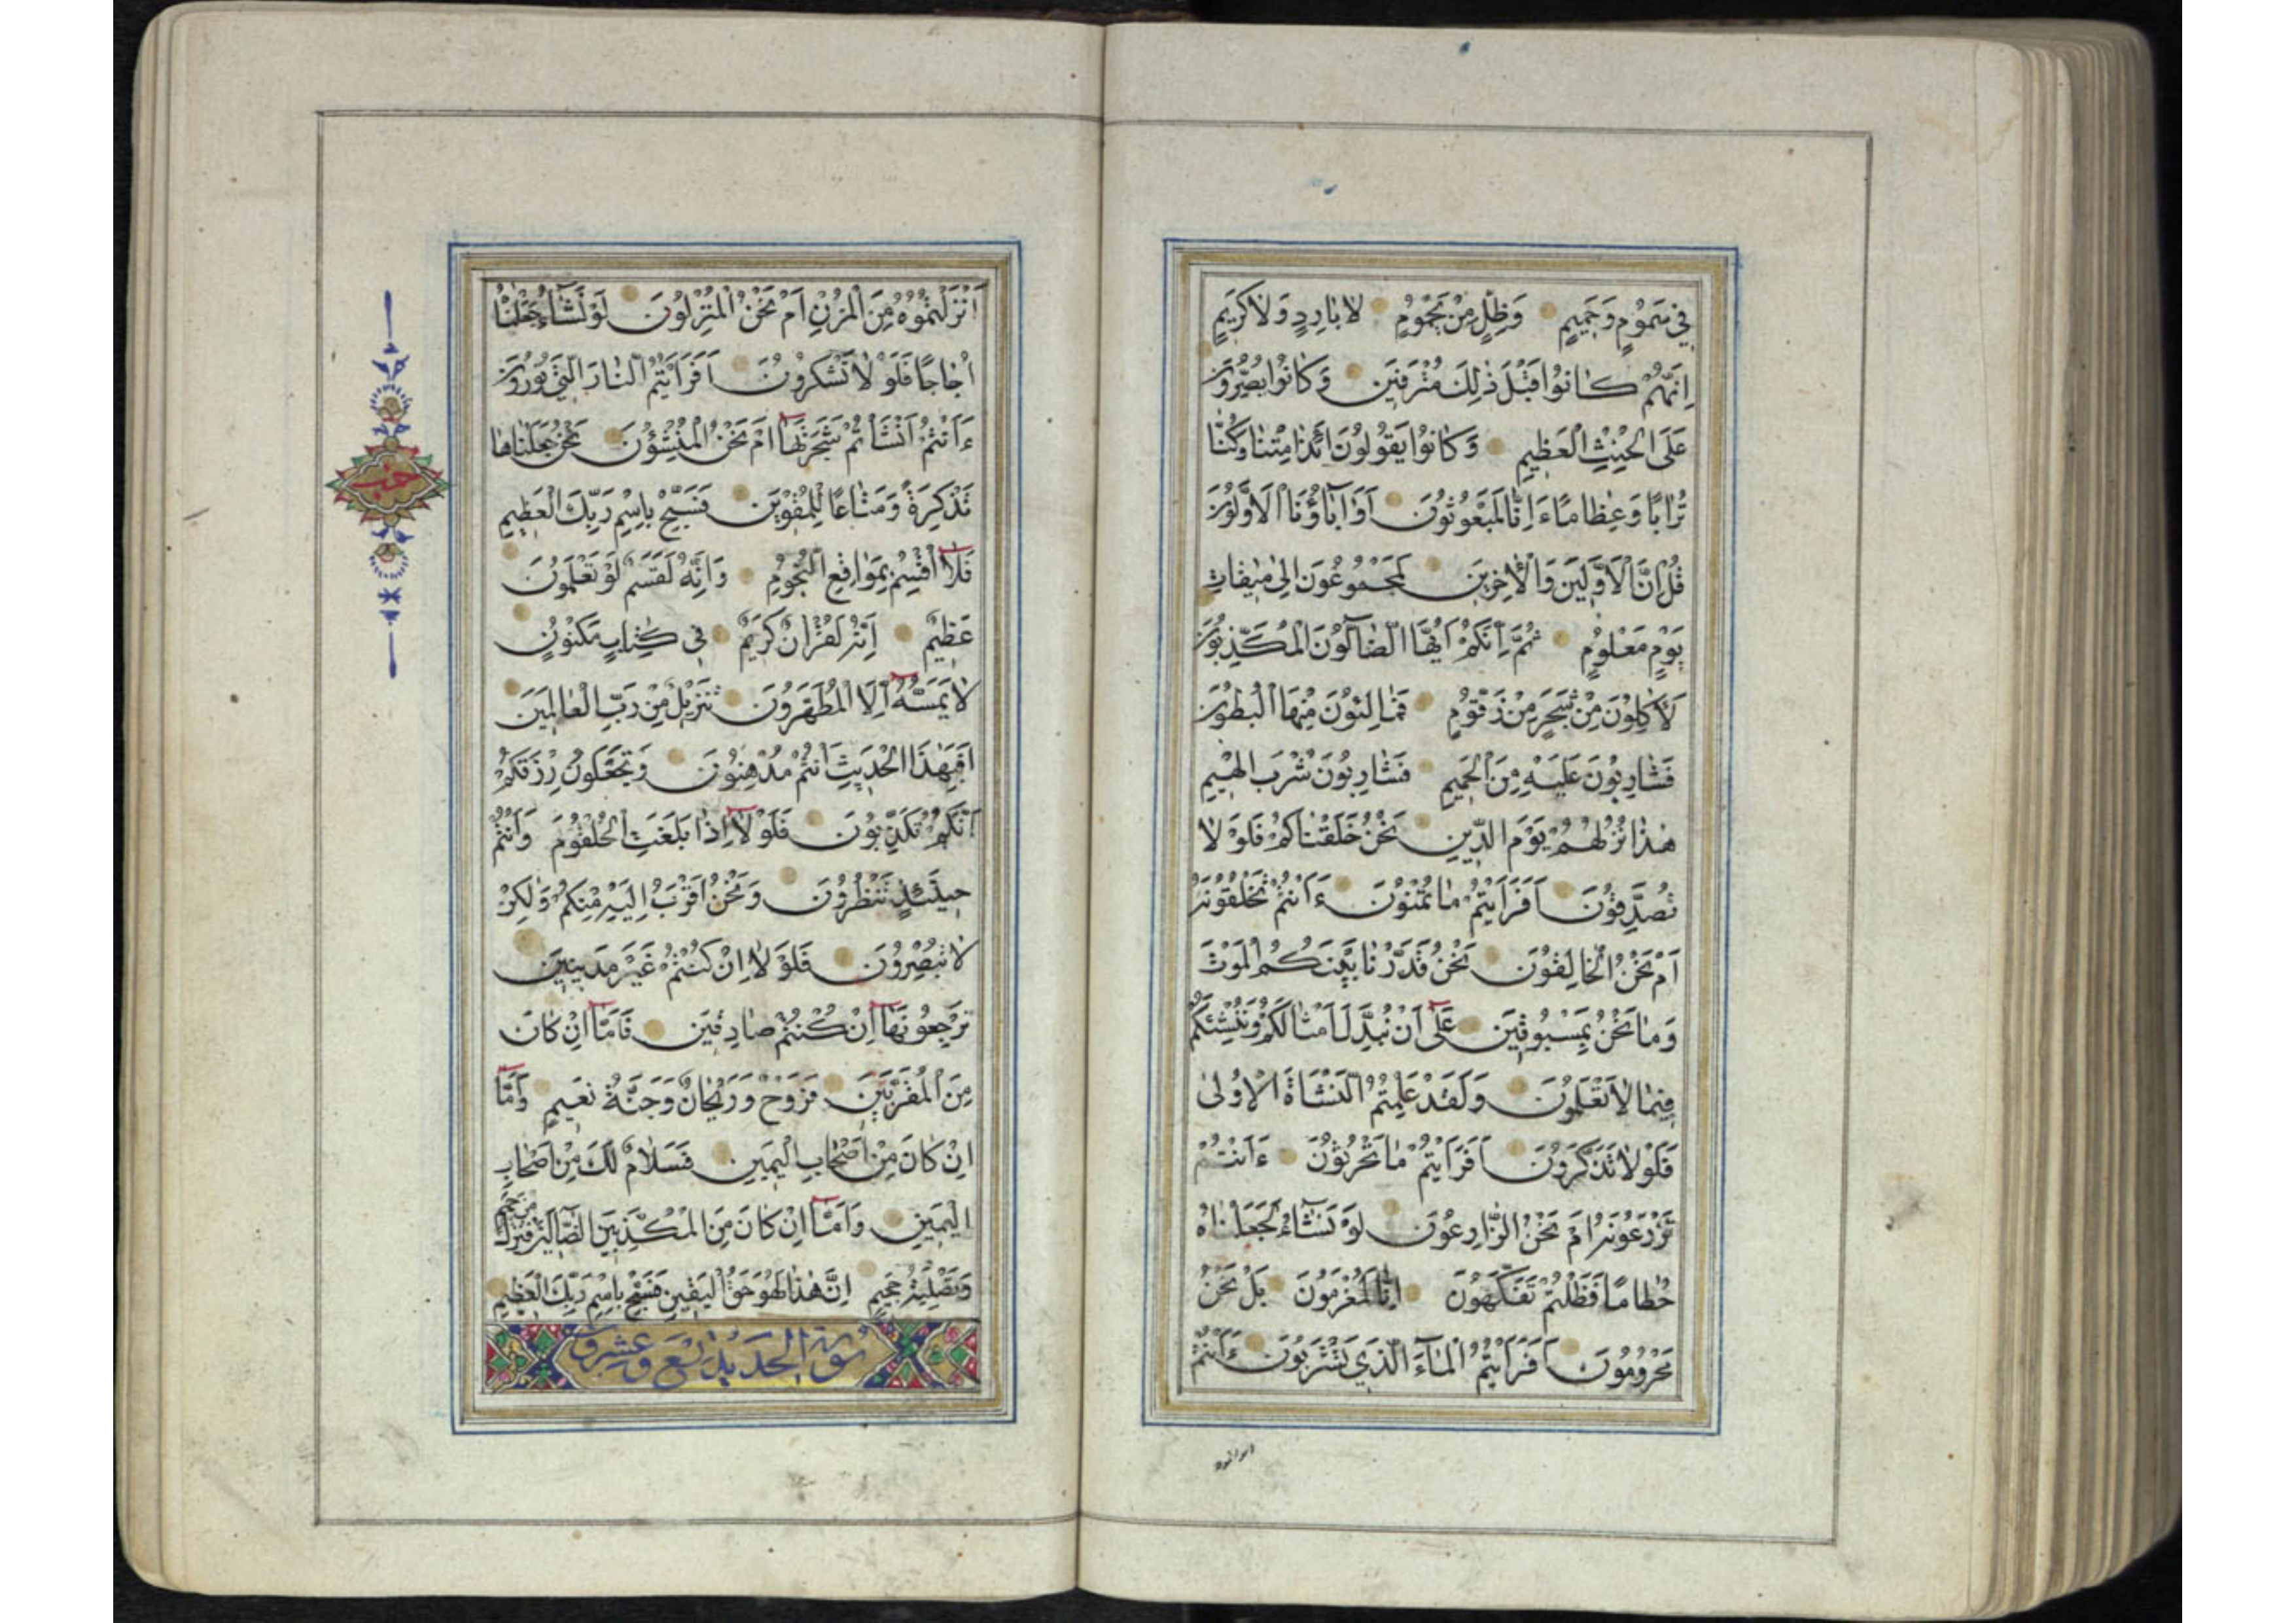 فِي سَمُومٍ وَحَمِيمٍ وَظِلٍّ مِنْ يَحْمُومٍ لَا بَارِدٍ وَلَا كَرِيمٍ
اِنَّهُمْ كَانُوا قَبْلَ ذٰلِكَ مُتْرَفِينَ وَكَانُوا يُصِرُّونَ
عَلَى الْحِنْثِ الْعَظِيمِ وَكَانُوا يَقُولُونَ ائِذَا مِتْنَا وَكُنَّا
تُرَابًا وَعِظَامًا ءَاِنَّا لَمَبْعُوثُونَ اَوَاٰبَاؤُنَا الْاَوَّلُونَ
قُلْ اِنَّ الْاَوَّلِينَ وَالْاٰخِرِينَ لَمَجْمُوعُونَ اِلٰى مِيقَاتِ
يَوْمٍ مَعْلُومٍ ثُمَّ اِنَّكُمْ اَيُّهَا الضَّآلُّونَ الْمُكَذِّبُونَ
لَاٰكِلُونَ مِنْ شَجَرٍ مِنْ زَقُّومٍ فَمَالِئُونَ مِنْهَا الْبُطُونَ
فَشَارِبُونَ عَلَيْهِ مِنَ الْحَمِيمِ فَشَارِبُونَ شُرْبَ الْهِيمِ
هٰذَا نُزُلُهُمْ يَوْمَ الدِّينِ نَحْنُ خَلَقْنَاكُمْ فَلَوْ لَا
تُصَدِّقُونَ اَفَرَاَيْتُمْ مَا تُمْنُونَ ءَاَنْتُمْ تَخْلُقُونَهُ
اَمْ نَحْنُ الْخَالِقُونَ نَحْنُ قَدَّرْنَا بَيْنَكُمُ الْمَوْتَ
وَمَا نَحْنُ بِمَسْبُوقِينَ عَلٰى اَنْ نُبَدِّلَ اَمْثَالَكُمْ وَنُنْشِئَكُمْ
فِيمَا لَا تَعْلَمُونَ وَلَقَدْ عَلِمْتُمُ النَّشْاَةَ الْاُولٰى
فَلَوْ لَا تَذَكَّرُونَ اَفَرَاَيْتُمْ مَا تَحْرُثُونَ ءَاَنْتُمْ
تَزْرَعُونَهُ اَمْ نَحْنُ الزَّارِعُونَ لَوْ نَشَآءُ لَجَعَلْنَاهُ
حُطَامًا فَظَلْتُمْ تَفَكَّهُونَ اِنَّا لَمُغْرَمُونَ بَلْ نَحْنُ
مَحْرُومُونَ اَفَرَاَيْتُمُ الْمَآءَ الَّذِي تَشْرَبُونَ ءَاَنْتُمْ
اَنْزَلْتُمُوهُ مِنَ الْمُزْنِ اَمْ نَحْنُ الْمُنْزِلُونَ لَوْ نَشَآءُ جَعَلْنَاهُ
اُجَاجًا فَلَوْ لَا تَشْكُرُونَ اَفَرَاَيْتُمُ النَّارَ الَّتِي تُورُونَ
ءَاَنْتُمْ اَنْشَاْتُمْ شَجَرَتَهَا اَمْ نَحْنُ الْمُنْشِؤُنَ نَحْنُ جَعَلْنَاهَا
تَذْكِرَةً وَمَتَاعًا لِلْمُقْوِينَ فَسَبِّحْ بِاسْمِ رَبِّكَ الْعَظِيمِ
فَلَا اُقْسِمُ بِمَوَاقِعِ النُّجُومِ وَاِنَّهُ لَقَسَمٌ لَوْ تَعْلَمُونَ
عَظِيمٌ اِنَّهُ لَقُرْاٰنٌ كَرِيمٌ فِي كِتَابٍ مَكْنُونٍ
لَا يَمَسُّهُ اِلَّا الْمُطَهَّرُونَ تَنْزِيلٌ مِنْ رَبِّ الْعَالَمِينَ
اَفَبِهٰذَا الْحَدِيثِ اَنْتُمْ مُدْهِنُونَ وَتَجْعَلُونَ رِزْقَكُمْ
اَنَّكُمْ تُكَذِّبُونَ فَلَوْ لَا اِذَا بَلَغَتِ الْحُلْقُومَ وَاَنْتُمْ
حِينَئِذٍ تَنْظُرُونَ وَنَحْنُ اَقْرَبُ اِلَيْهِ مِنْكُمْ وَلٰكِنْ
لَا تُبْصِرُونَ فَلَوْ لَا اِنْ كُنْتُمْ غَيْرَ مَدِينِينَ
تَرْجِعُونَهَا اِنْ كُنْتُمْ صَادِقِينَ فَاَمَّا اِنْ كَانَ
مِنَ الْمُقَرَّبِينَ فَرَوْحٌ وَرَيْحَانٌ وَجَنَّةُ نَعِيمٍ وَاَمَّا
اِنْ كَانَ مِنْ اَصْحَابِ الْيَمِينِ فَسَلَامٌ لَكَ مِنْ اَصْحَابِ
الْيَمِينِ وَاَمَّا اِنْ كَانَ مِنَ الْمُكَذِّبِينَ الضَّآلِّينَ فَنُزُلٌ مِنْ حَمِيمٍ
وَتَصْلِيَةُ جَحِيمٍ اِنَّ هٰذَا لَهُوَ حَقُّ الْيَقِينِ فَسَبِّحْ بِاسْمِ رَبِّكَ الْعَظِيمِ
سورة الحديد تسع وعشرون
حزب